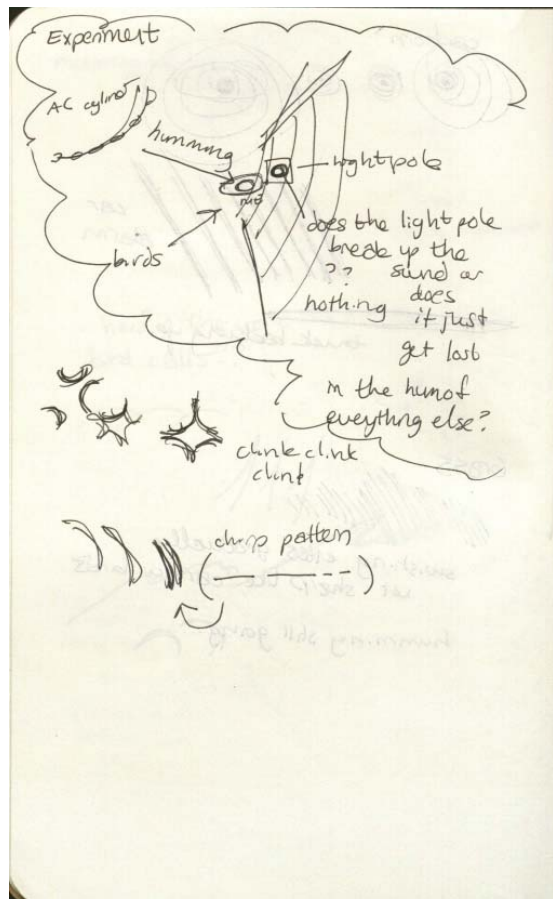 Experiment
AC cylind
humming
light pole
me
birds
does the light pole
break up the
?? sound or
nothing does
it just
get lost
in the hum of
everything else?
clink clink
clink
chirp pattern